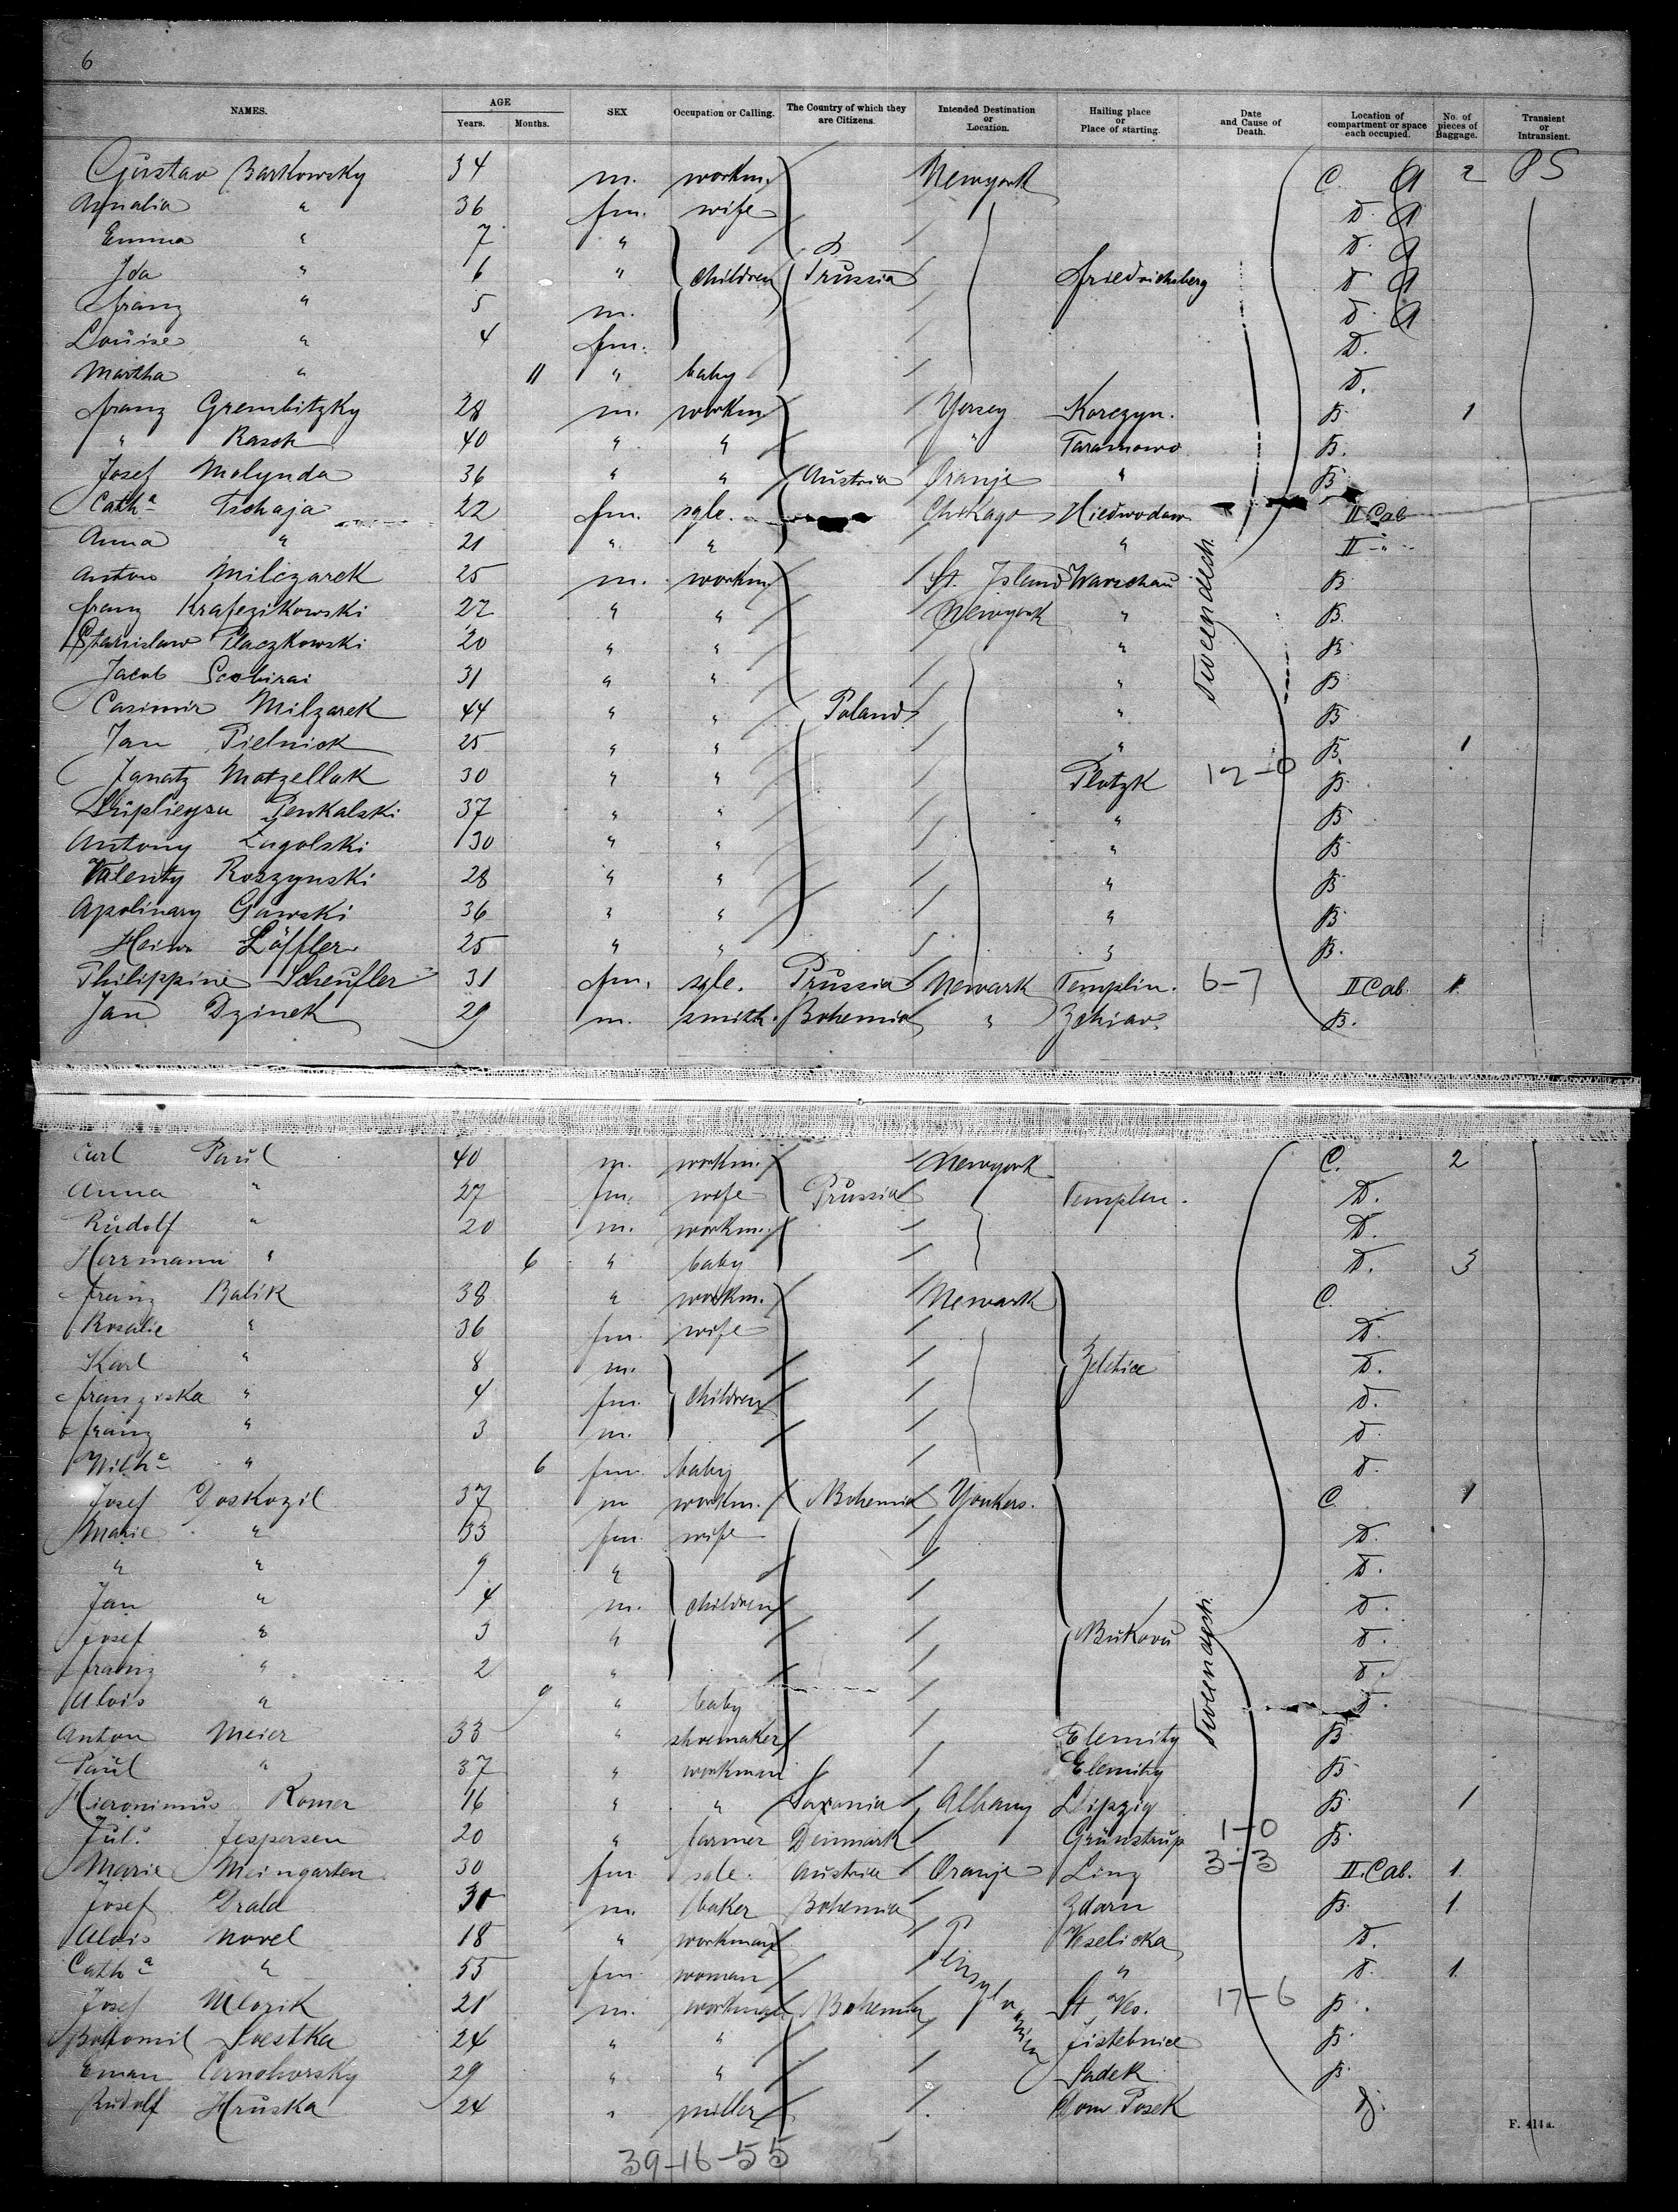 6
NAMES. AGE Years. Months. SEX Occupation or Calling. The Country of which they are Citizens. Intended Destination or Location. Hailing place or Place of starting. Date and Cause of Death. Location of compartment or space each occupied. No. of pieces of Baggage. Transient or Intransient.
Gustav Barkowsky 34 m. workm. Newyork C. 2 PS
Amalia " 36 fm. wife D.
Emma " 7 " D.
Ida " 6 " children Prussia Friedrichsberg D.
Franz " 5 m. D.
Louise " 4 fm. D.
Martha " 11 " baby D.
Franz Grembitzky 28 m. workm. Yersey Korczyn. B. 1
" Rasch 40 " " " Taranowo B.
Josef Molynda 36 " " Austria Oranje " B
Cath a Tschaja 22 fm. sgle. Chikago Niedwodaw II Cab
Anna " 21 " " " II "
Anton Milczarek 25 m. workm. St. Island Warschau B
Franz Krafezikowski 22 " " Newyork " B.
Stanislaw Placzkowski 20 " " " B
Jacob Scobirai 31 " " " B
Casimir Milzarek 44 " " Poland " B
Jan Pielnick 25 " " " B. 1
Ignatz Matzellak 30 " " Plotzk 12-0 B.
Penkalski 37 " " " B
Antony Zagolski 30 " " " B
Valenty Roszynski 28 " " " B
Apolinary Gawski 36 " " " B
Heinr. Löffler 25 " " " B.
Philippine Scheufler 31 fm. sgle. Prussia Newark Templin. 6-7 II Cab. 1.
Jan Dzinek 29 m. smith. Bohemia " Zdiar. B.
Tweendeck.
Carl Paul 40 m. workm. Newyork C. 2
Anna " 27 fm. wife Prussia Templin. D.
Rudolf " 20 m. workm. D.
Herrmann " 6 " baby D. 3
Franz Balik 38 " workm. Newark C.
Rosalie " 36 fm. wife D.
Karl " 8 m. Zelchice D.
Franziska " 4 fm. children D.
Franz " 3 m. D.
Wilh a " 6 fm. baby D.
Josef Doskozil 37 m workm. Bohemia Yonkers. C 1
Marie " 33 fm. wife D.
" " 9 " D.
Jan " 4 m. children D.
Josef " 3 " Bukova D.
Franz " 2 " D.
Alois " 9 " baby D.
Anton Meier 33 " shoemaker Elemity B
Paul " 37 " workman Elemity B
Hieronimus Romer 16 " " Saxonia Albany Leipzig B 1
Jul. Jespersen 20 " farmer Denmark Grünstrup 1-0 B.
Marie Meingarten 30 fm sgle. Austria Oranje Linz 3-3 II. Cab. 1.
Josef Drala 30 m. baker Bohemia Zdarn B. 1.
Alois Novel 18 " workman Veselicka D.
Cath a " 55 fm. woman " D. 1.
Josef Mlorik 21 m. workman Bohemia St. Ves. 17-6 B.
Bohomil Svestka 24 " " Jistebnice B.
Eman Cernohorsky 29 " " Sadek B.
Rudolf Hruska 24 " miller Dom Posek
Pensylvania
Tweendeck.
39-16-55
F. 414a.